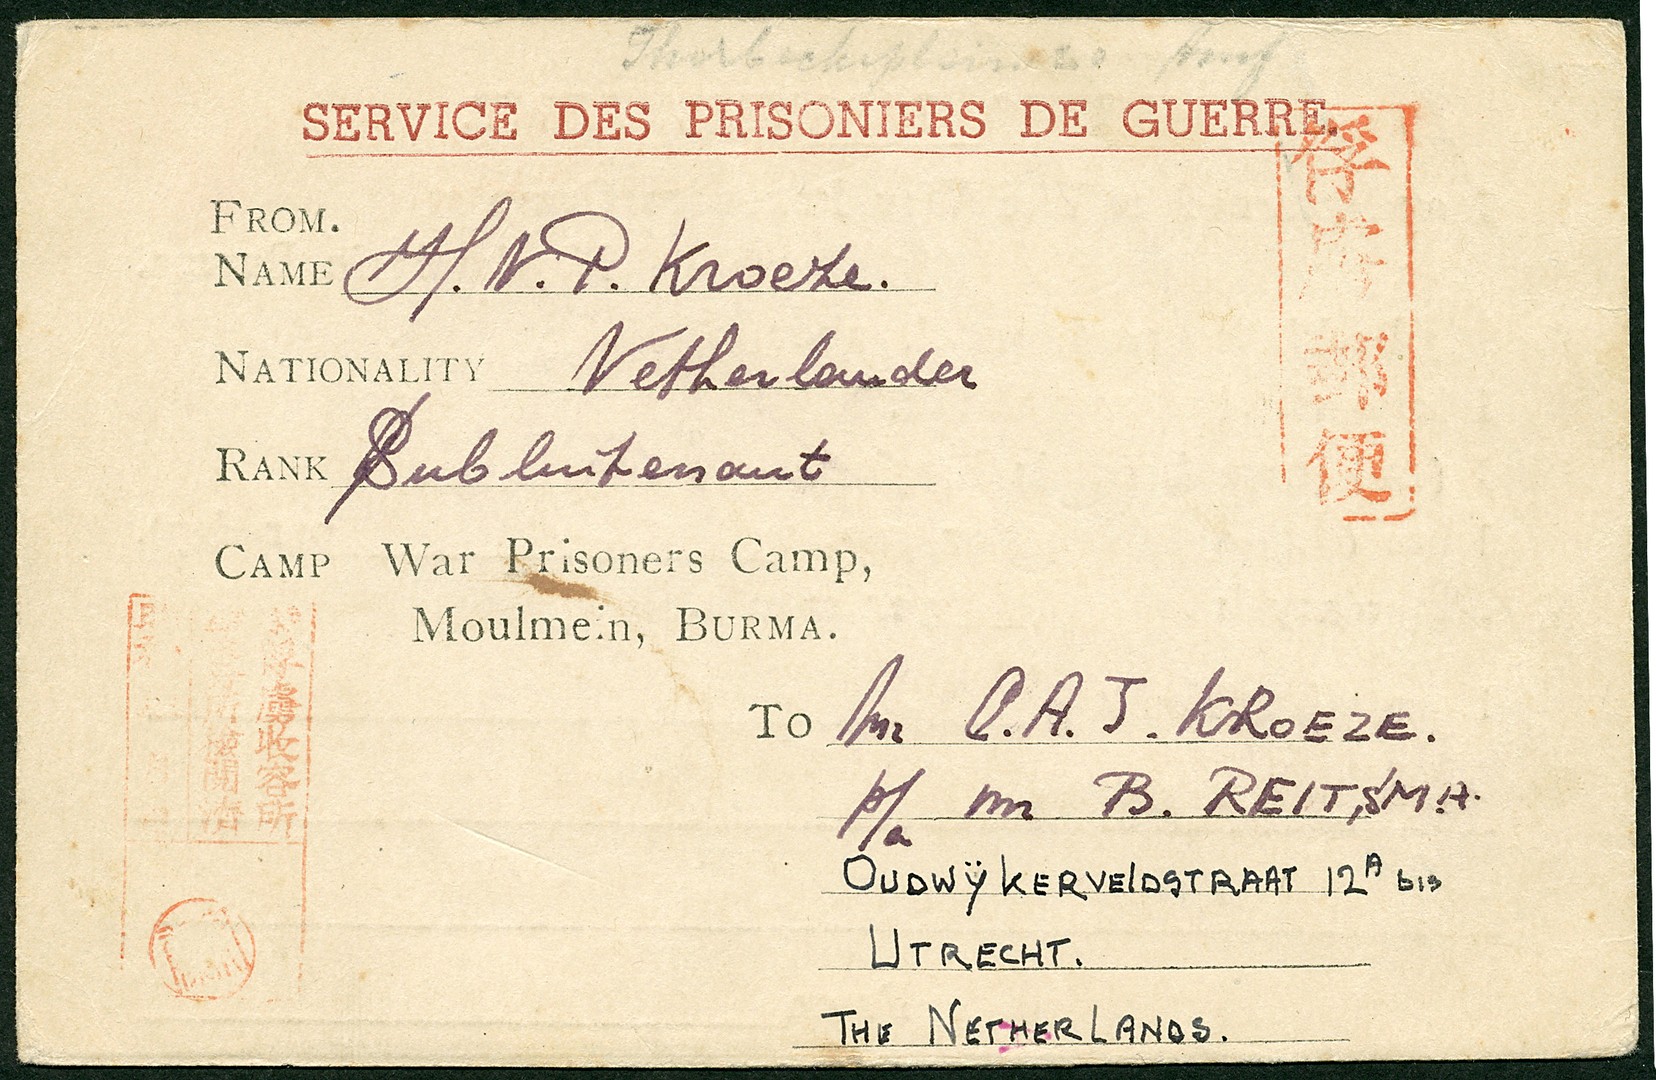 SERVICE DES PRISONIERS DE GUERRE.
俘虜郵便
FROM.
NAME H. N. P. Kroeze.
NATIONALITY Netherlander
RANK Subluitenant
CAMP War Prisoners Camp,
Moulmein, BURMA.
俘虜收容所
檢閲濟
To Mr C. A. J. KROEZE.
p/a Mr B. REITSMA.
OUDWIJKERVELDSTRAAT 12A bis
UTRECHT.
THE NETHERLANDS.